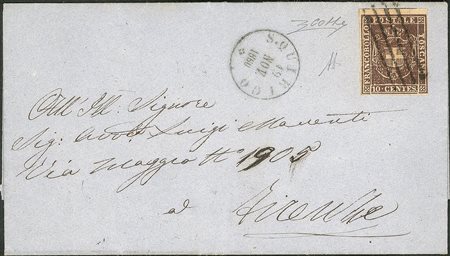 FRANCOBOLLO POSTALE TOSCANO
10 CENTES
S. QUIRICO
19
NOV
1860
All' Ill. Signore
Sig. Avv. Luigi
Via Maggio N° 1905
a Firenze